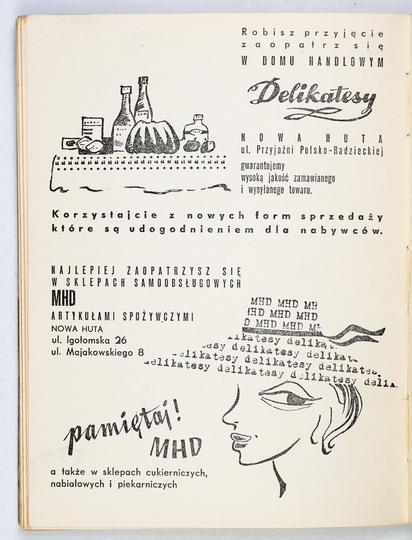 Robisz przyjęcie
zaopatrz się
W DOMU HANDLOWYM
Delikatesy
NOWA HUTA
ul. Przyjaźni Polsko-Radzieckiej
gwarantujemy
wysoką jakość zamawianego
i wysyłanego towaru.
Korzystajcie z nowych form sprzedaży
które są udogodnieniem dla nabywców.
NAJLEPIEJ ZAOPATRZYSZ SIĘ
W SKLEPACH SAMOOBSŁUGOWYCH
MHD
ARTYKUŁAMI SPOŻYWCZYMI
NOWA HUTA
ul. Igołomska 26
ul. Majakowskiego 8
MHD MHD MH
HD MHD MHD
D MHD MHD M
delikatesy delikat
tesy delikatesy delikat
likatesy delikatesy delikates
delikatesy delikatesy delikatesy deli
pamiętaj!
MHD
a także w sklepach cukierniczych,
nabiałowych i piekarniczych